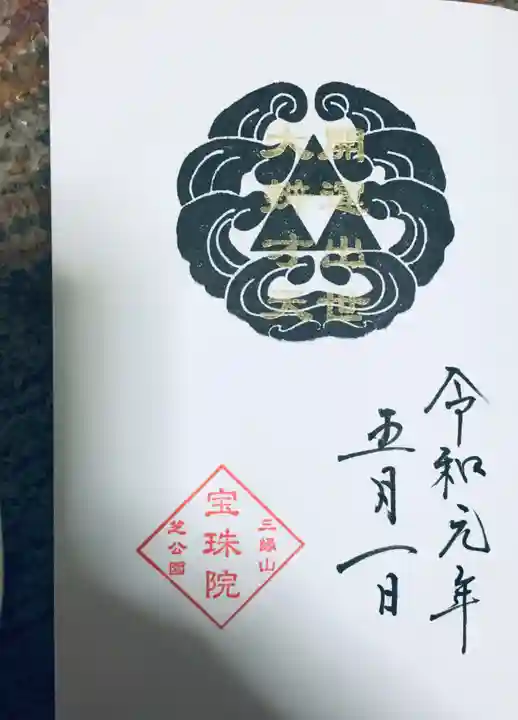 開運出世
大辨才天
令和元年
五月一日
三縁山
宝珠院
芝公園